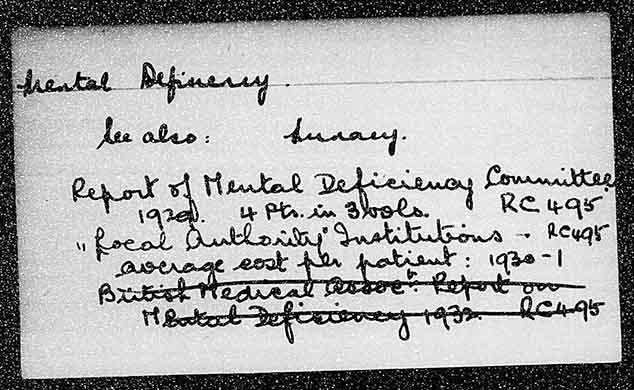 Mental Definency.
See also: Lunacy.
Report of Mental Deficiency Committee
1929. 4 Pts. in 3 vols. RC 495
"Local Authority" Institutions - RC495
average cost per patient : 1930-1
British Medical Assocn. Report on
Mental Deficiency 1932. RC495